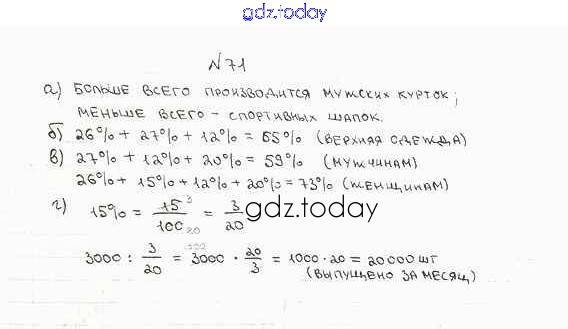 gdz.today
№ 71
а) БОЛЬШЕ ВСЕГО ПРОИЗВОДИТСЯ МУЖСКИХ КУРТОК;
МЕНЬШЕ ВСЕГО - СПОРТИВНЫХ ШАПОК.
б) 26% + 27% + 12% = 65% (ВЕРХНЯЯ ОДЕЖДА)
в) 27% + 12% + 20% = 59% (МУЖЧИНАМ)
26% + 15% + 12% + 20% = 73% (ЖЕНЩИНАМ)
г) 15% = 15 3/100 20 = 3/20
gdz.today
3000 : 3/20 = 3000 1000 · 20/3 = 1000 · 20 = 20 000 ШТ
(ВЫПУЩЕНО ЗА МЕСЯЦ)